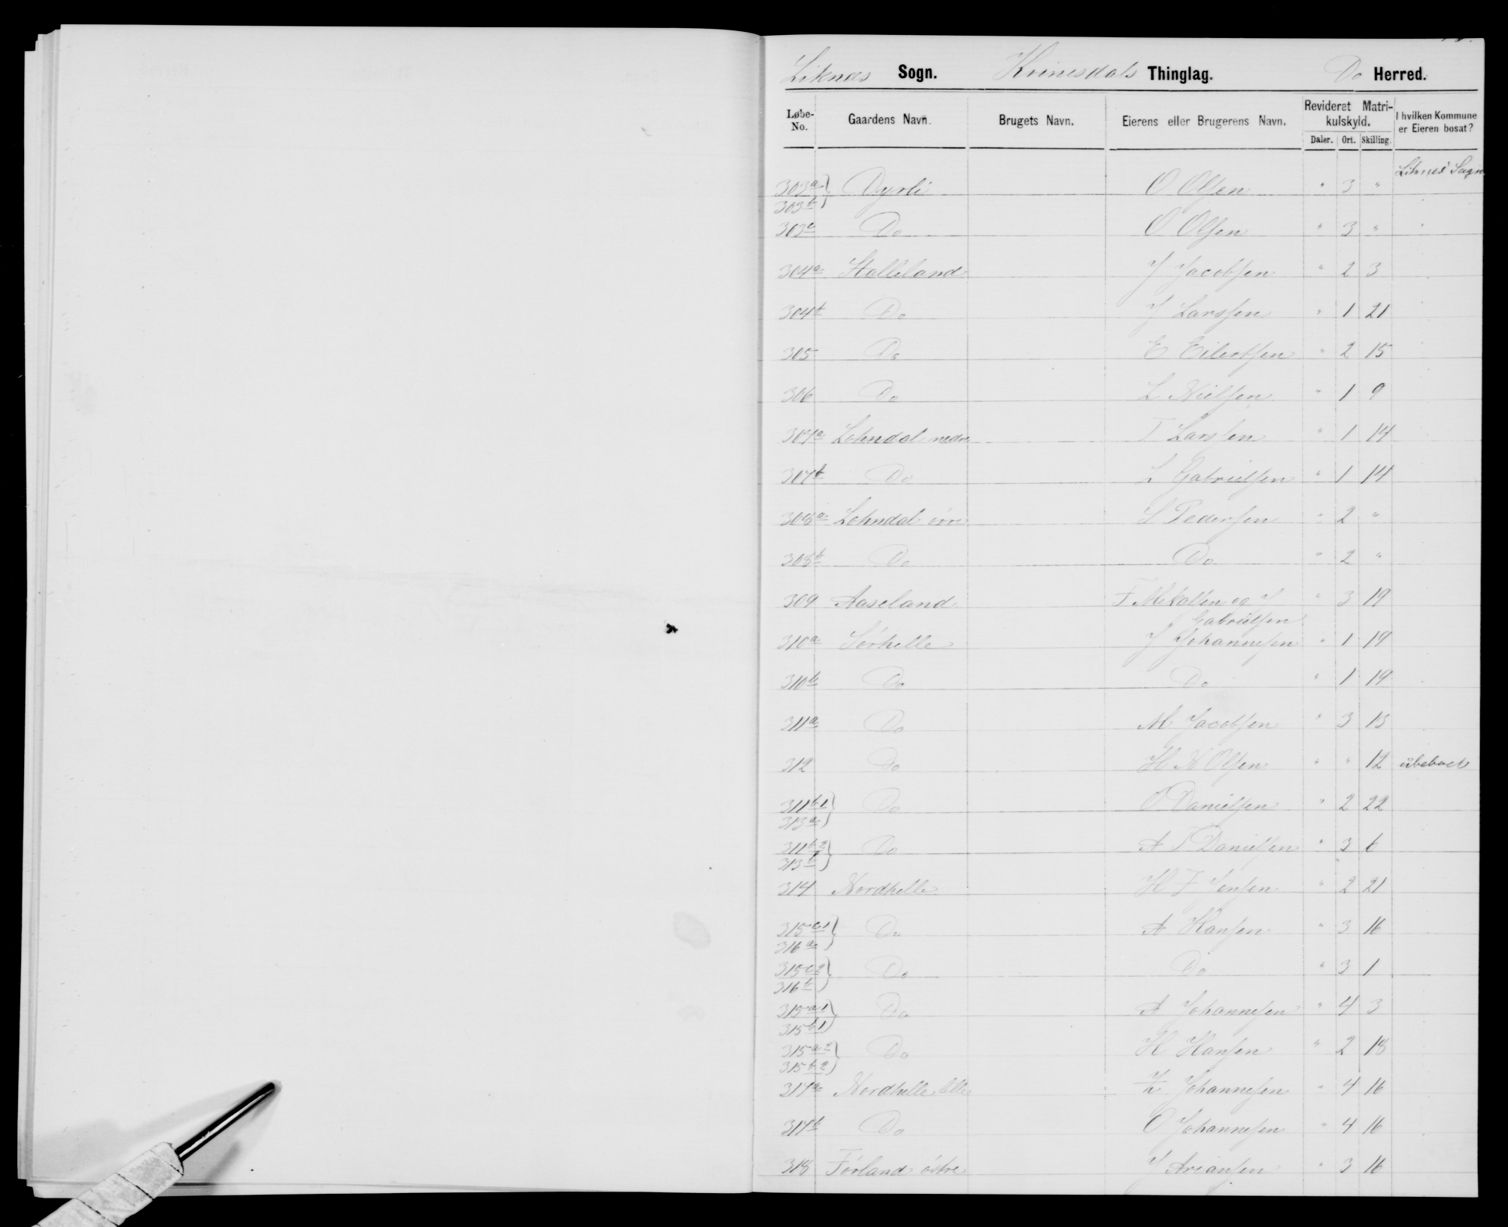 Liknes Sogn. Kvinesdals Thinglag. Do Herred.
Løbe-No. Gaardens Navn. Brugets Navn. Eierens eller Brugerens Navn. Revideret Matrikulskyld. Daler. Ort. Skilling. I hvilken Kommune er Eieren bosat?
303a 303b } Dyrli O Olsen " 3 " Liknes Sogn
303c Do O Olsen " 3 " "
304a Stalleland J Jacobsen " 2 3
304b Do J Larssen " 1 21
305 Do E Eilertsen " 2 15
306 Do L Nielsen " 1 9
307a Lohndal nedre T Larsen " 1 14
307b Do L Gabrielsen " 1 14
308a Lohndal øvre S Pedersen " 2 "
308b Do Do " 2 "
309 Aaseland F Mikalsen og J Gabrielsen " 3 19
310a Sørhelle J Johannesen " 1 19
310b Do Do " 1 19
311a Do M Jacobsen " 3 13
312 Do H N Olsen " " 12 ubeboet
311b1 313a } Do O Danielsen " 2 22
311b2 313b } Do A T Danielsen " 3 6
314 Nordhelle H J Jensen " 2 21
315c1 316a } Do A Hansen " 3 16
315c2 316b } Do Do " 3 1
315a1 315b1 } Do A Johannesen " 4 3
315a2 315b2 } Do H Hansen " 2 18
317a Nordhelle lille Z Johannesen " 4 16
317b Do O Johannesen " 4 16
318 Førland østre J Ariansen " 3 16